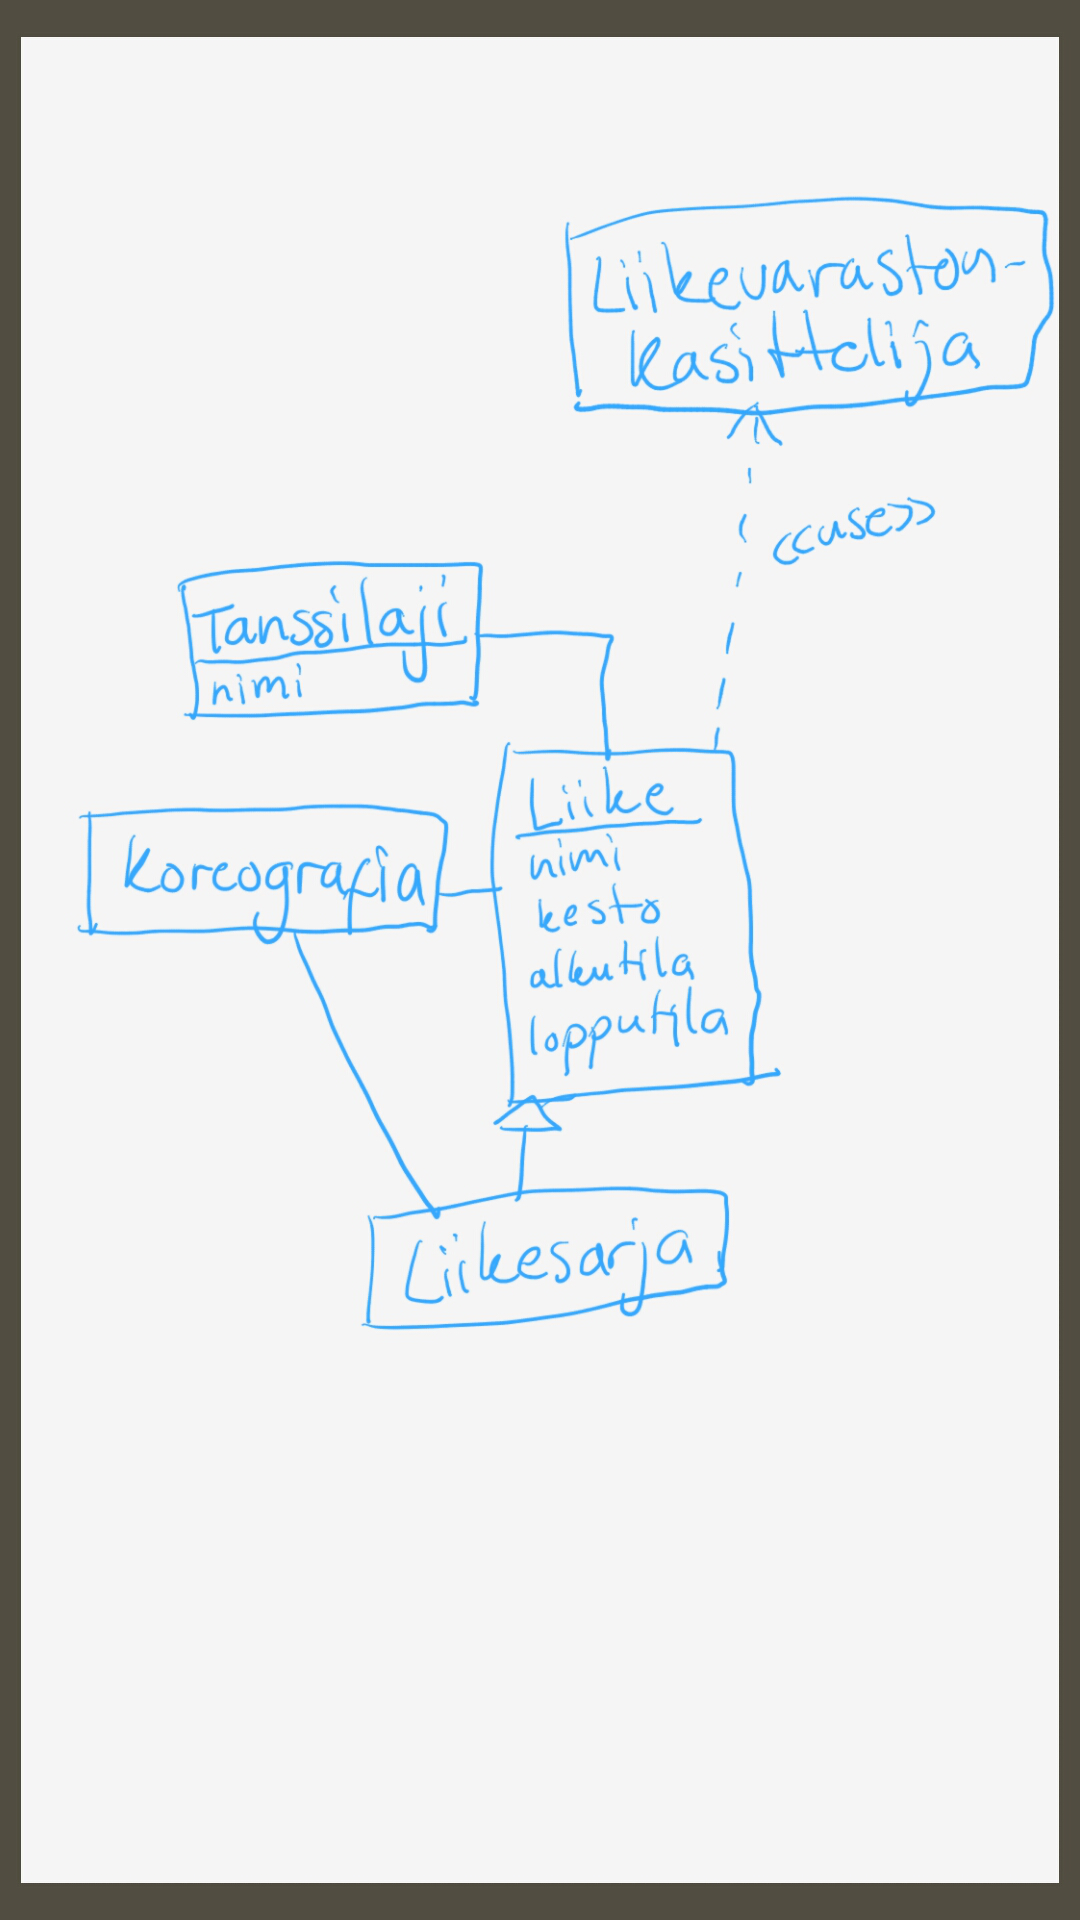 Liikevaraston-
kasittelija
<<use>>
Tanssilaji
nimi
Liike
nimi
kesto
alkutila
lopputila
Koreografia
Liikesarja